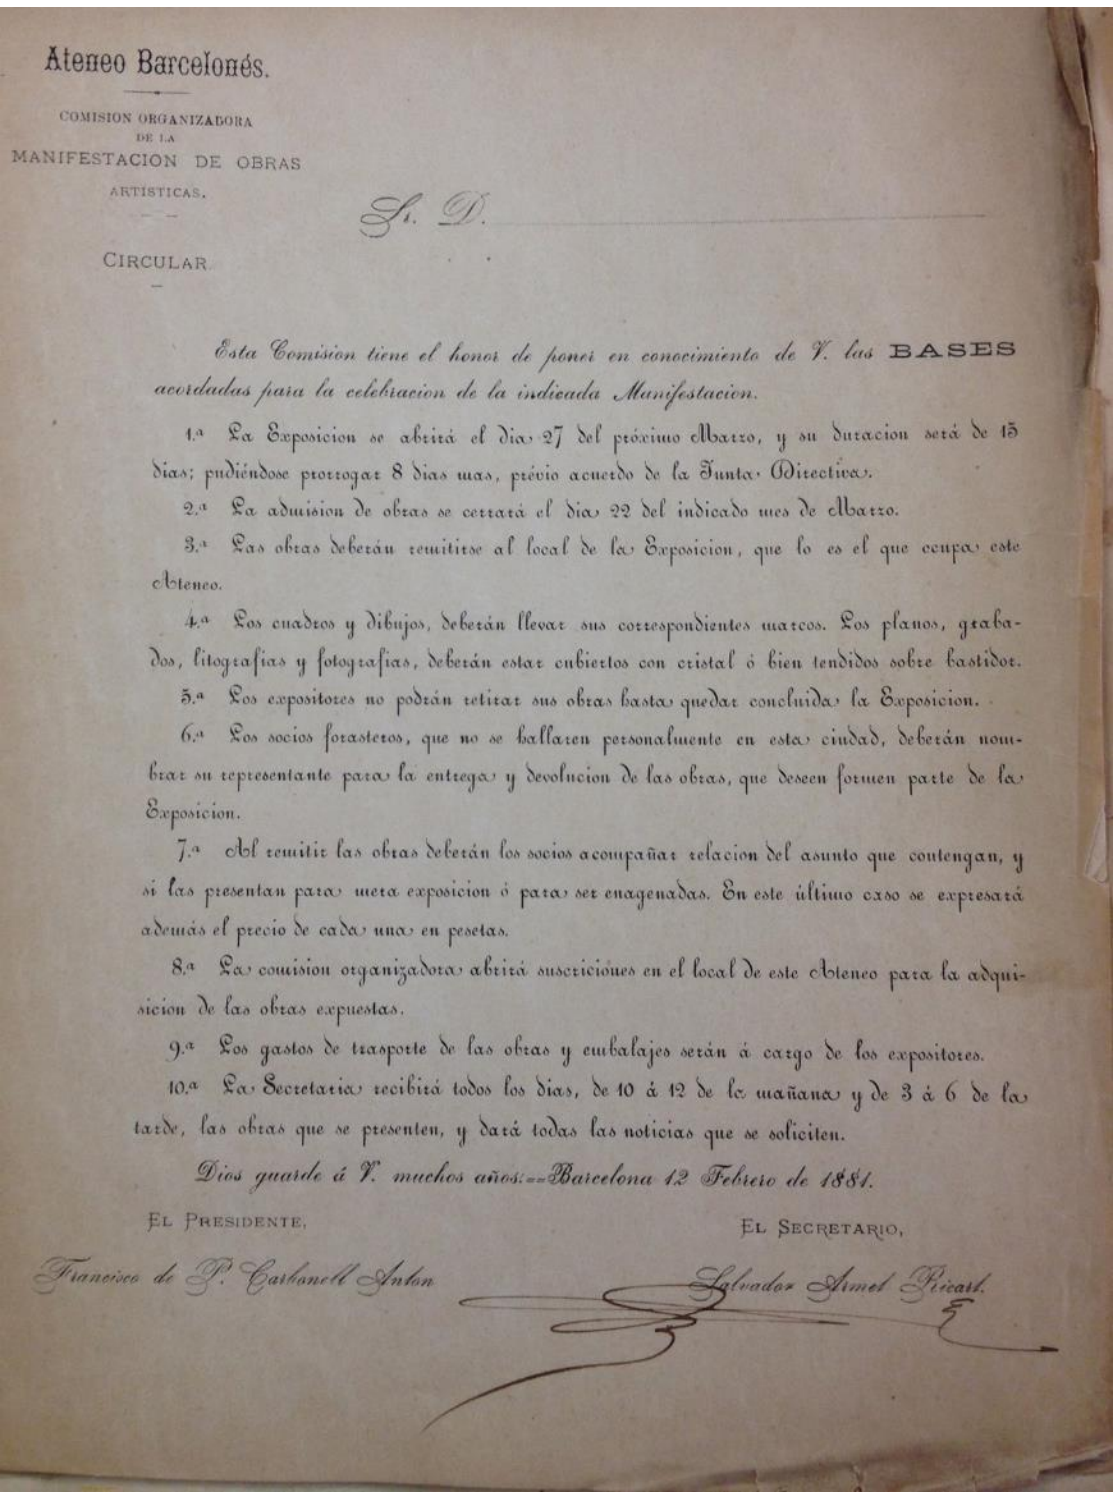 Ateneo Barcelonés.
COMISION ORGANIZADORA
DE LA
MANIFESTACION DE OBRAS
ARTISTICAS.
CIRCULAR.
Sr. D.
Esta Comision tiene el honor de poner en conocimiento de V. las BASES
acordadas para la celebracion de la indicada Manifestacion.
1.ª La Exposicion se abrirá el dia 27 del próximo Marzo, y su duracion será de 15
dias; pudiéndose prorrogar 8 dias mas, prévio acuerdo de la Junta Directiva.
2.ª La admision de obras se cerrará el dia 22 del indicado mes de Marzo.
3.ª Las obras deberán remitirse al local de la Exposicion, que lo es el que ocupa este
Ateneo.
4.ª Los cuadros y dibujos, deberán llevar sus correspondientes marcos. Los planos, graba-
dos, litografias y fotografias, deberán estar cubiertos con cristal ó bien tendidos sobre bastidor.
5.ª Los expositores no podrán retirar sus obras hasta quedar concluida la Exposicion.
6.ª Los socios forasteros, que no se hallaren personalmente en esta ciudad, deberán nom-
brar su representante para la entrega y devolucion de las obras, que deseen formen parte de la
Exposicion.
7.ª Al remitir las obras deberán los socios acompañar relacion del asunto que contengan, y
si las presentan para mera exposicion ó para ser enagenadas. En este último caso se expresará
además el precio de cada una en pesetas.
8.ª La comision organizadora abrirá suscriciones en el local de este Ateneo para la adqui-
sicion de las obras expuestas.
9.ª Los gastos de trasporte de las obras y embalajes serán á cargo de los expositores.
10.ª La Secretaria recibirá todos los dias, de 10 á 12 de la mañana y de 3 á 6 de la
tarde, las obras que se presenten, y dará todas las noticias que se soliciten.
Dios guarde á V. muchos años.==Barcelona 12 Febrero de 1881.
EL PRESIDENTE,
EL SECRETARIO,
Francisco de P. Carbonell Anton
Salvador Armet Ricart.